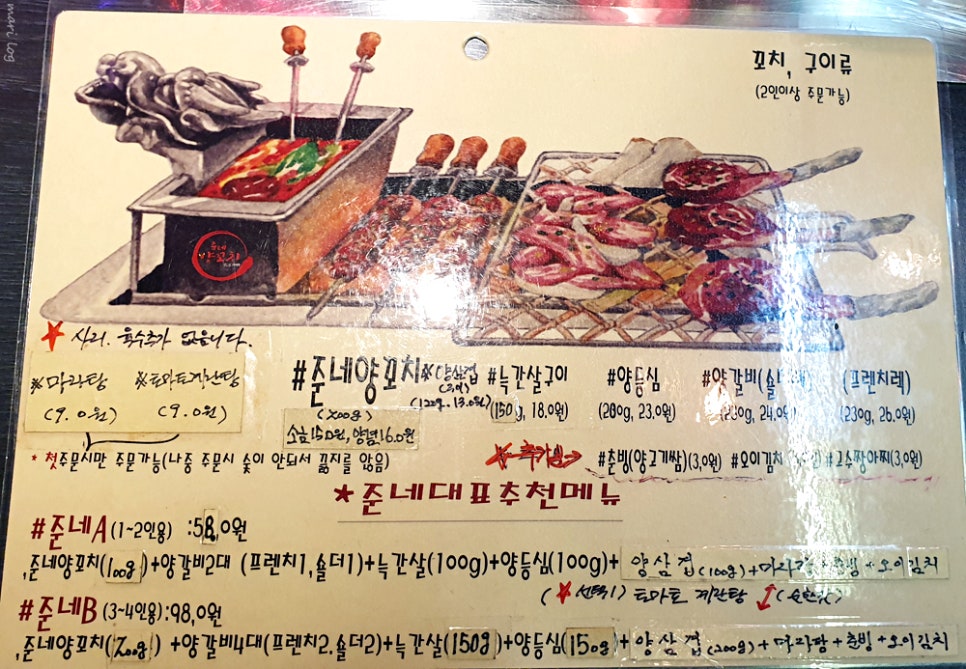 mari log
꼬치, 구이류
(2인이상 주문가능)
준네
양꼬치
★ 사리. 육수추가 없습니다.
※마라탕 ※토마토계란탕
(9.0원) (9.0원)
* 첫주문시만 주문가능(나중 주문시 숯이 안되서 끓지를 않음)
#준네양꼬치 ※양삼겹 #늑간살구이 #양등심 #양갈비(숄 (프렌치렉)
(200g) (120g. 13.0원) (150g, 18.0원) (200g, 23.0원) (230g, 24.0원) (230g, 26.0원)
소금15.0원, 양념16.0원
#춘빙(양고기쌈)(3,0원) #오이김치 #고수짱아찌(3,0원)
*준네대표추천메뉴
#준네A (1~2인용) :58,0원
,준네양꼬치(100g)+양갈비2대 (프렌치1,숄더1)+늑간살(100g)+양등심(100g)+ 양삼겹(100g)+마라탕+춘빙+오이김치
(★선택1) 토마토 계란탕
#준네B (3~4인용):98,0원
,준네양꼬치(200g) +양갈비4대(프렌치2.숄더2)+늑간살(150g)+양등심(150g)+ 양삼겹(200g)+마라탕+춘빙+오이김치